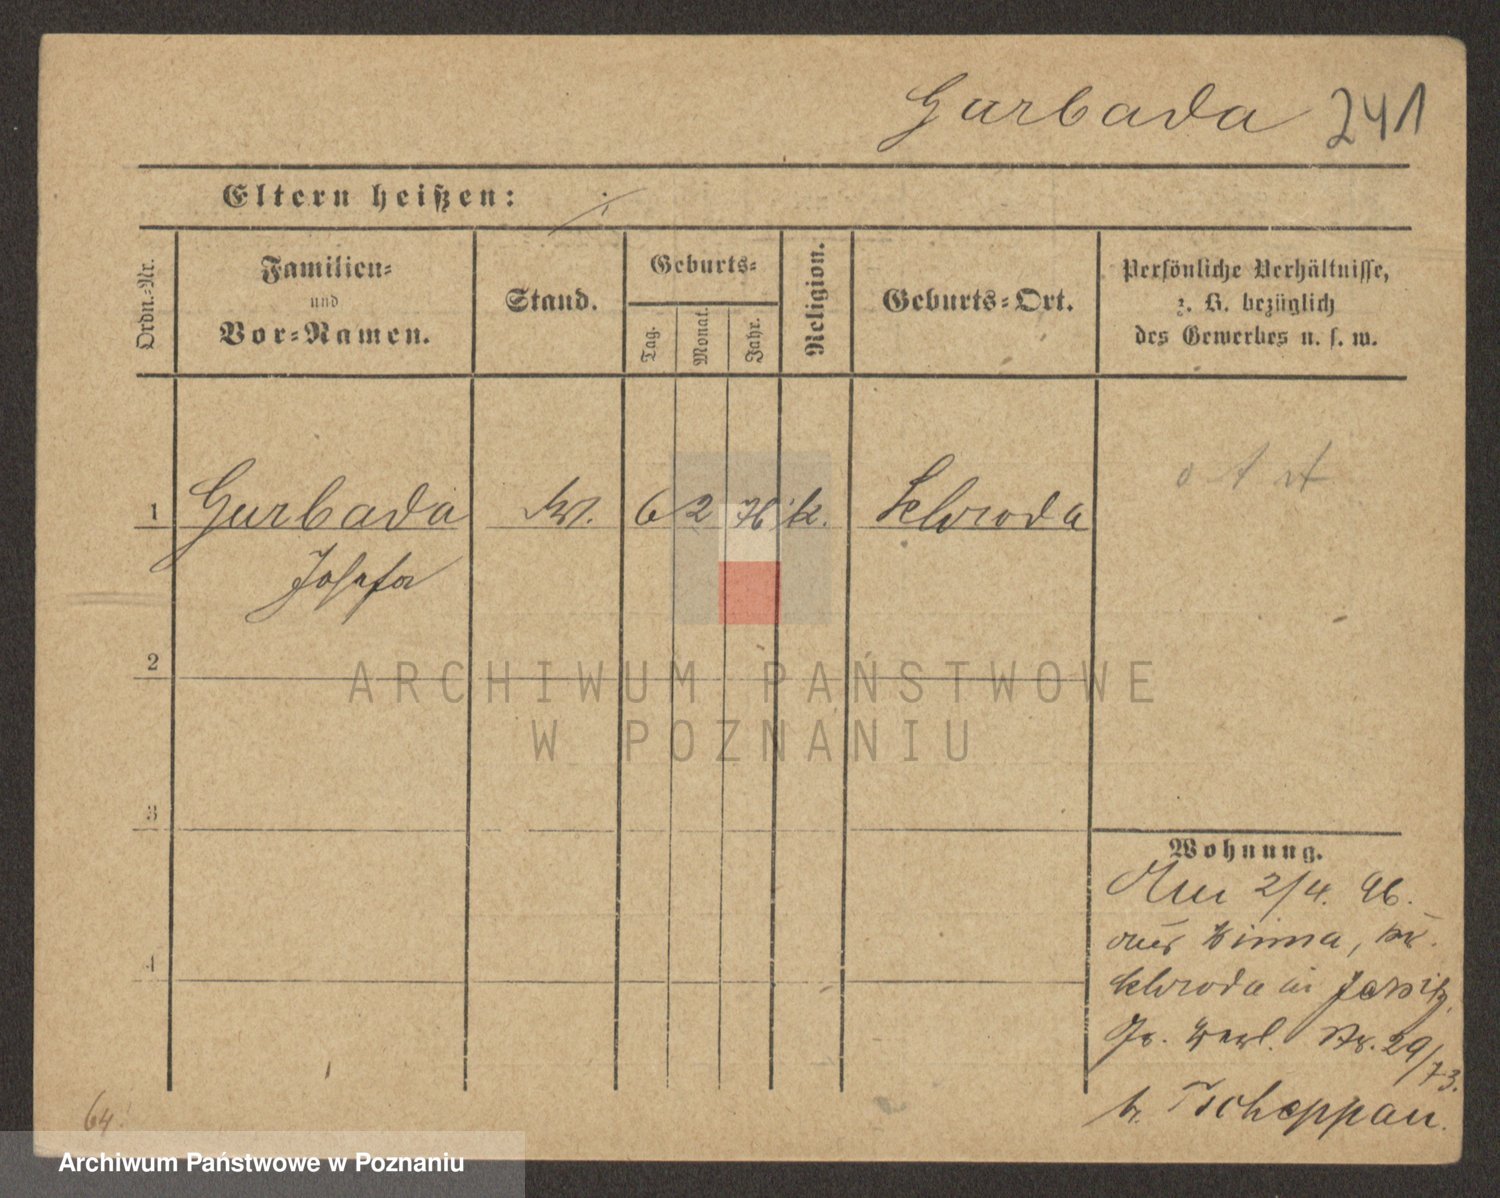 Gurbada 241
Eltern heißen:
Ordn.-Nr.
Familien-
und
Vor-Namen.
Stand.
Geburts-
Tag.
Monat.
Jahr.
Religion.
Geburts-Ort.
Persönliche Verhältnisse,
z. B. bezüglich
des Gewerbes u. s. w.
1 Gurbada 6 2 76 k. Schroda
Josefa
2
3
4
Wohnung.
2/4. 96.
aus Winna, Kr.
Schroda in Jersitz,
Gr. Berl. Str. 29/73.
b. Tscheppau.
64.
ARCHIWUM PAŃSTWOWE
W POZNANIU
Archiwum Państwowe w Poznaniu